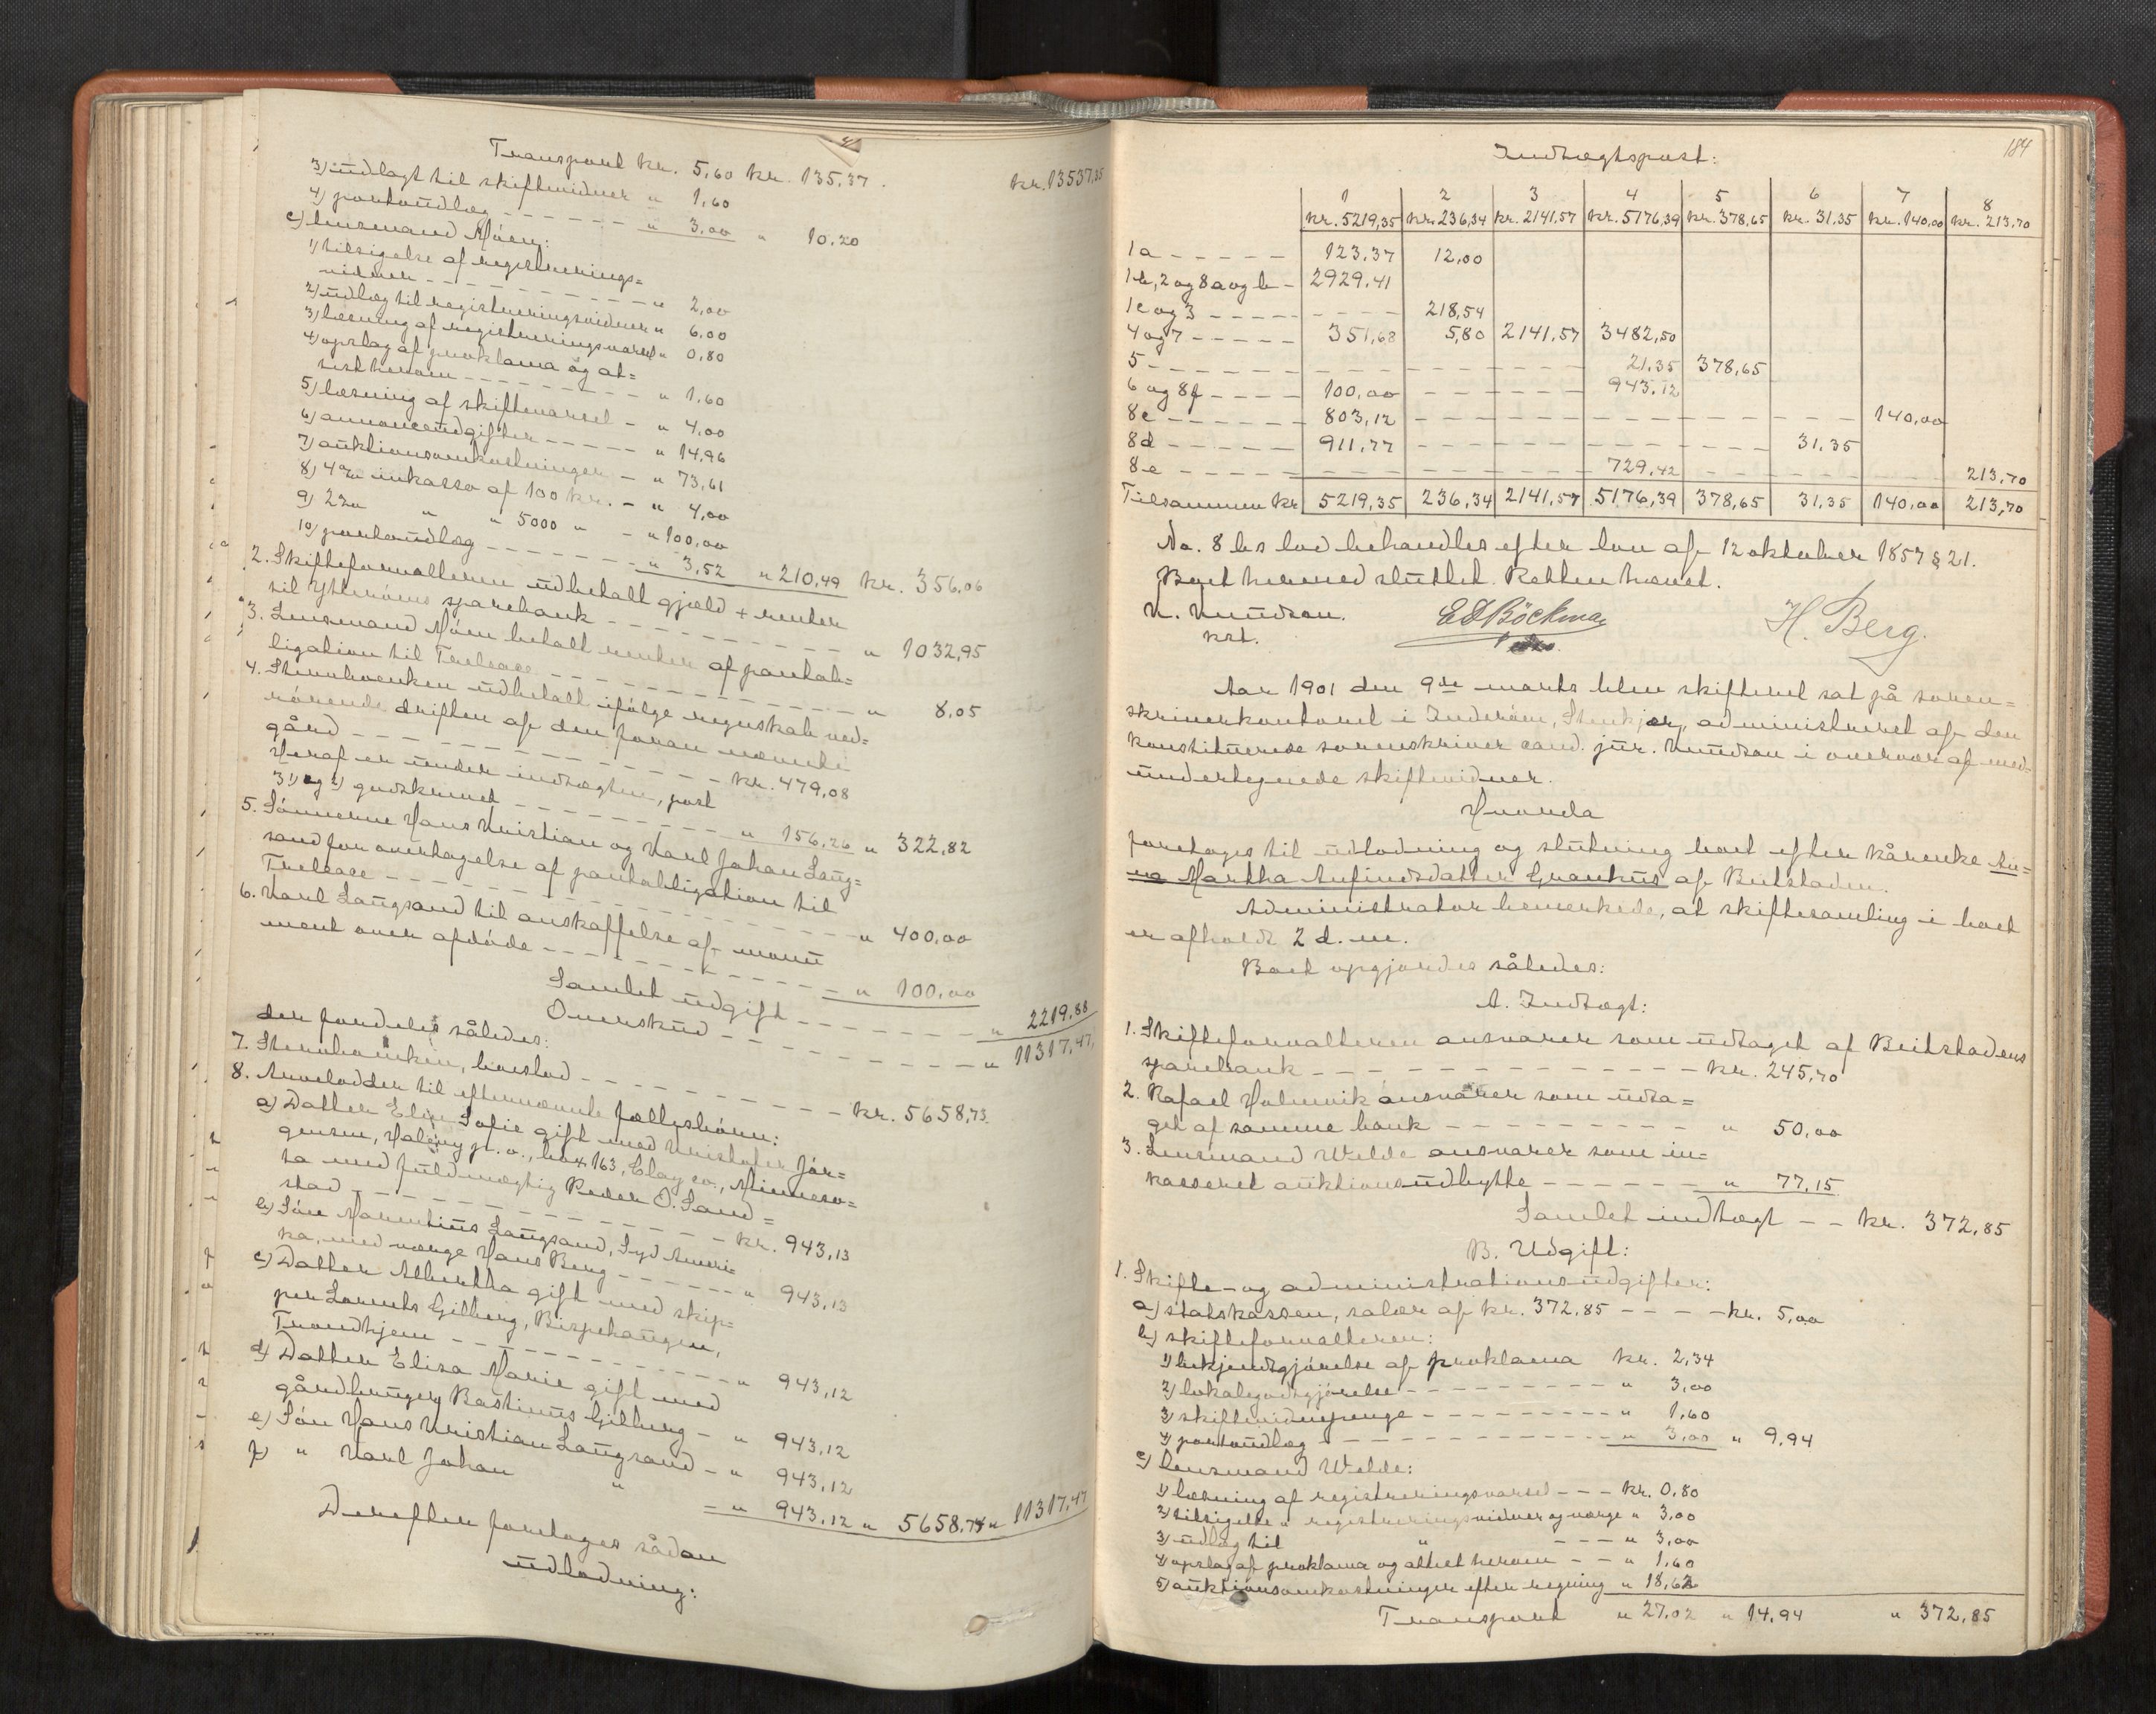 Transport kr. 5,60 kr. 135,37. kr. 13537,35
3) udlagt til skiftevidner " 1,60
4) portoudlæg - - - " 3,00 " 10.20
c) lensmand Aasen:
1) tilsigelse af registrerings=
vidner - - - " 2,00
2) udlæg til registreringsvidner " 6,00
3) læsning af registreringsvarsel " 0,80
4) opslag af proklama og at=
test herom - - - " 1,60
5) læsning af skiftevarsel - " 4,00
6) annonceudgifter - - - " 14,96
7) auktionsomkostninger - " 73,61
8) 4% inkasso af 100 kr. - " 4,00
9) 2% " " 5000 " - " 100,00
10) portoudlæg - - - " 3,52 " 210,49 kr. 356,06
2. Skifteforvalteren udbetalt gjæld + renter
til Ytterøens sparebank - - - " 1032,95
3. Lensmand betalt renter af pantob=
ligation til Trelease - - - " 8,05
4. Stervboenken udbetalt ifølge regnskab ved=
rørende driften af den foran nævnte
gård - - - kr. 479,08
Heraf er under indtægten, post
3 1) og 2) godskrevet - - - " 156,26 " 322,82
5. Sønnerne Hans Kristian og Karl Johan Laug=
sand for overtagelse af pantobligation til
Trelease - - - " 400,00
6. Karl Laugsand til anskaffelse af monu
ment over afdøde - - - " 100,00
Samlet udgift - - - " 2219,88
Overskud - - - " 11317,47,
der fordeles således:
7. Stervboenken, boeslod - - - kr. 5658,73
8. Arvelodder til efternævnte fællesbørn:
a) Datter Elen Sofie gift med Kristofer Jør=
gensen, p. o., box 163, Clay co., Minneso=
ta med fuldmægtig Peder O. Sand=
stad - - - kr. 943,13
b) Søn Martinus Laugsand, Syd Ameri=
ka, med værge Hans Berg - - - " 943,13
c) Datter Albertha gift med skip=
per Lorents Gilberg, Bispehaugen,
Trondhjem - - - " 943,12
d) Datter Elisa Marie gift med
gårdbruger Bastinus Gilberg - " 943,12
e) Søn Hans Kristian Laugsand - " 943,12
f) " Karl Johan " = " 943,12 " 5658,74 " 11317,47
Derefter foretages sådan
udlodning:
184
Indtægtspost:
1 2 3 4 5 6 7 8
kr. 5219,35 kr. 236,34 kr. 2141,57 kr. 5176,39 kr. 378,65 kr. 31,35 kr. 140,00 kr. 213,70
1a - - - 123,37 12,00
1b, 2 og 8a og b - 2929,41
1c og 3 - - - 218,54
4 og 7 - - - 351,68 5,80 2141,57 3482,50
5 - - - 21,35 378,65
6 og 8f - - - 100,00 - - - 943,12
8c - - - 803,12 - - - 140,00
8d - - - 911,77 - - - 31,35
8e - - - 729,42 - - - 213,70
Tilsammen kr. 5219,35 236,34 2141,57 5176,39 378,65 31,35 140,00 213,70
No. 8 bs lod behandles efter lov af 12 oktober 1857 § 21.
Boet hermed sluttet. Retten hævet.
K. Knudson. E S Böckman H. Berg.
kst.
Aar 1901 den 9de marts blev skifteret sat på soren=
skriverkontoret i Inderøen, Stenkjær, administreret af den
konstituerede sorenskriver cand. jur. Knudson i overvær af med=
undertegnede skiftevidner.
Hvorda
foretoges til udlodning og slutning boet efter kårenke An=
na Martha Anfindsdatter Granhus af Beitstaden.
Administrator bemerkede, at skiftesamling i boet
er afholdt 2 d. m.
Boet opgjordes således:
A. Indtægt:
1. Skifteforvalteren ansvarer som udtaget af Beitstadens
sparebank - - - kr. 245,70
2. Rafael Holmvik ansvarer som udta=
get af samme bank - - - " 50,00
3. Lensmand Welde ansvarer som in=
kasseret auktionsudbytte - - - " 77,15
Samlet indtægt - - kr. 372,85
B. Udgift:
1. Skifte- og administrationsudgifter:
a) statskassen, salær af kr. 372,85 - - - kr. 5,00
b) skifteforvalteren:
1) bekjendtgjørelse af proklama kr. 2,34
2) lokalegodtgjørelse - - - " 3,00
3) skiftevidnepenge - - - " 1,60
4) portoudlæg - - - " 3,00 " 9,94
c) lensmand Welde:
1) læsning af registreringsvarsel - - - kr. 0,80
2) tilsigelse " registreringsvidner og værge " 3,00
3) udlæg til " - - - " 3,00
4) opslag af proklama og attest herom - - " 1,60
5) auktionsomkostninger efter regning " 18,62
Transport " 27,02 " 14,94 " 372,85